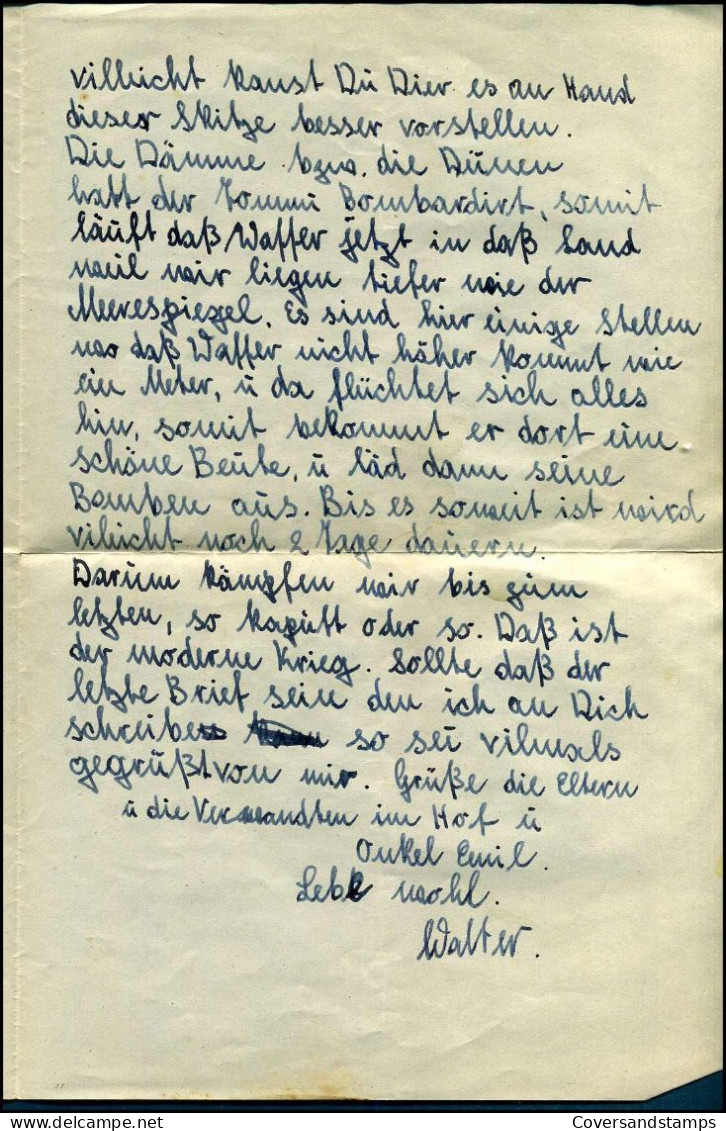 villeicht kanst Du Dier es an Hand
dieser Skitze besser vorstellen.
Die Dämme bzw. die Dünen
hatt der Tommi Bombardirt, somit
läuft daß Waffer jetzt in daß Land
weil wir liegen tiefer wie der
Meerespiegel. Es sind hier einige Stellen
wo daß Waffer nicht höher kommt wie
ein Meter, u da flüchtet sich alles
hin, somit bekommt er dort eine
schöne Beute, u läd dann seine
Bomben aus. Bis es soweit ist wird
vilicht noch 2 Tage dauern.
Darum kämpfen wir bis zum
letzten, so kaputt oder so. Daß ist
der moderne Krieg. Sollte daß der
letzte Brief sein den ich an Dich
schreibe so sei vilmals
gegrüßt von mir. Grüße die Eltern
u die Verwandten im Hof u
Onkel Emil.
Lebe wohl.
Walter.
Coversandstamps